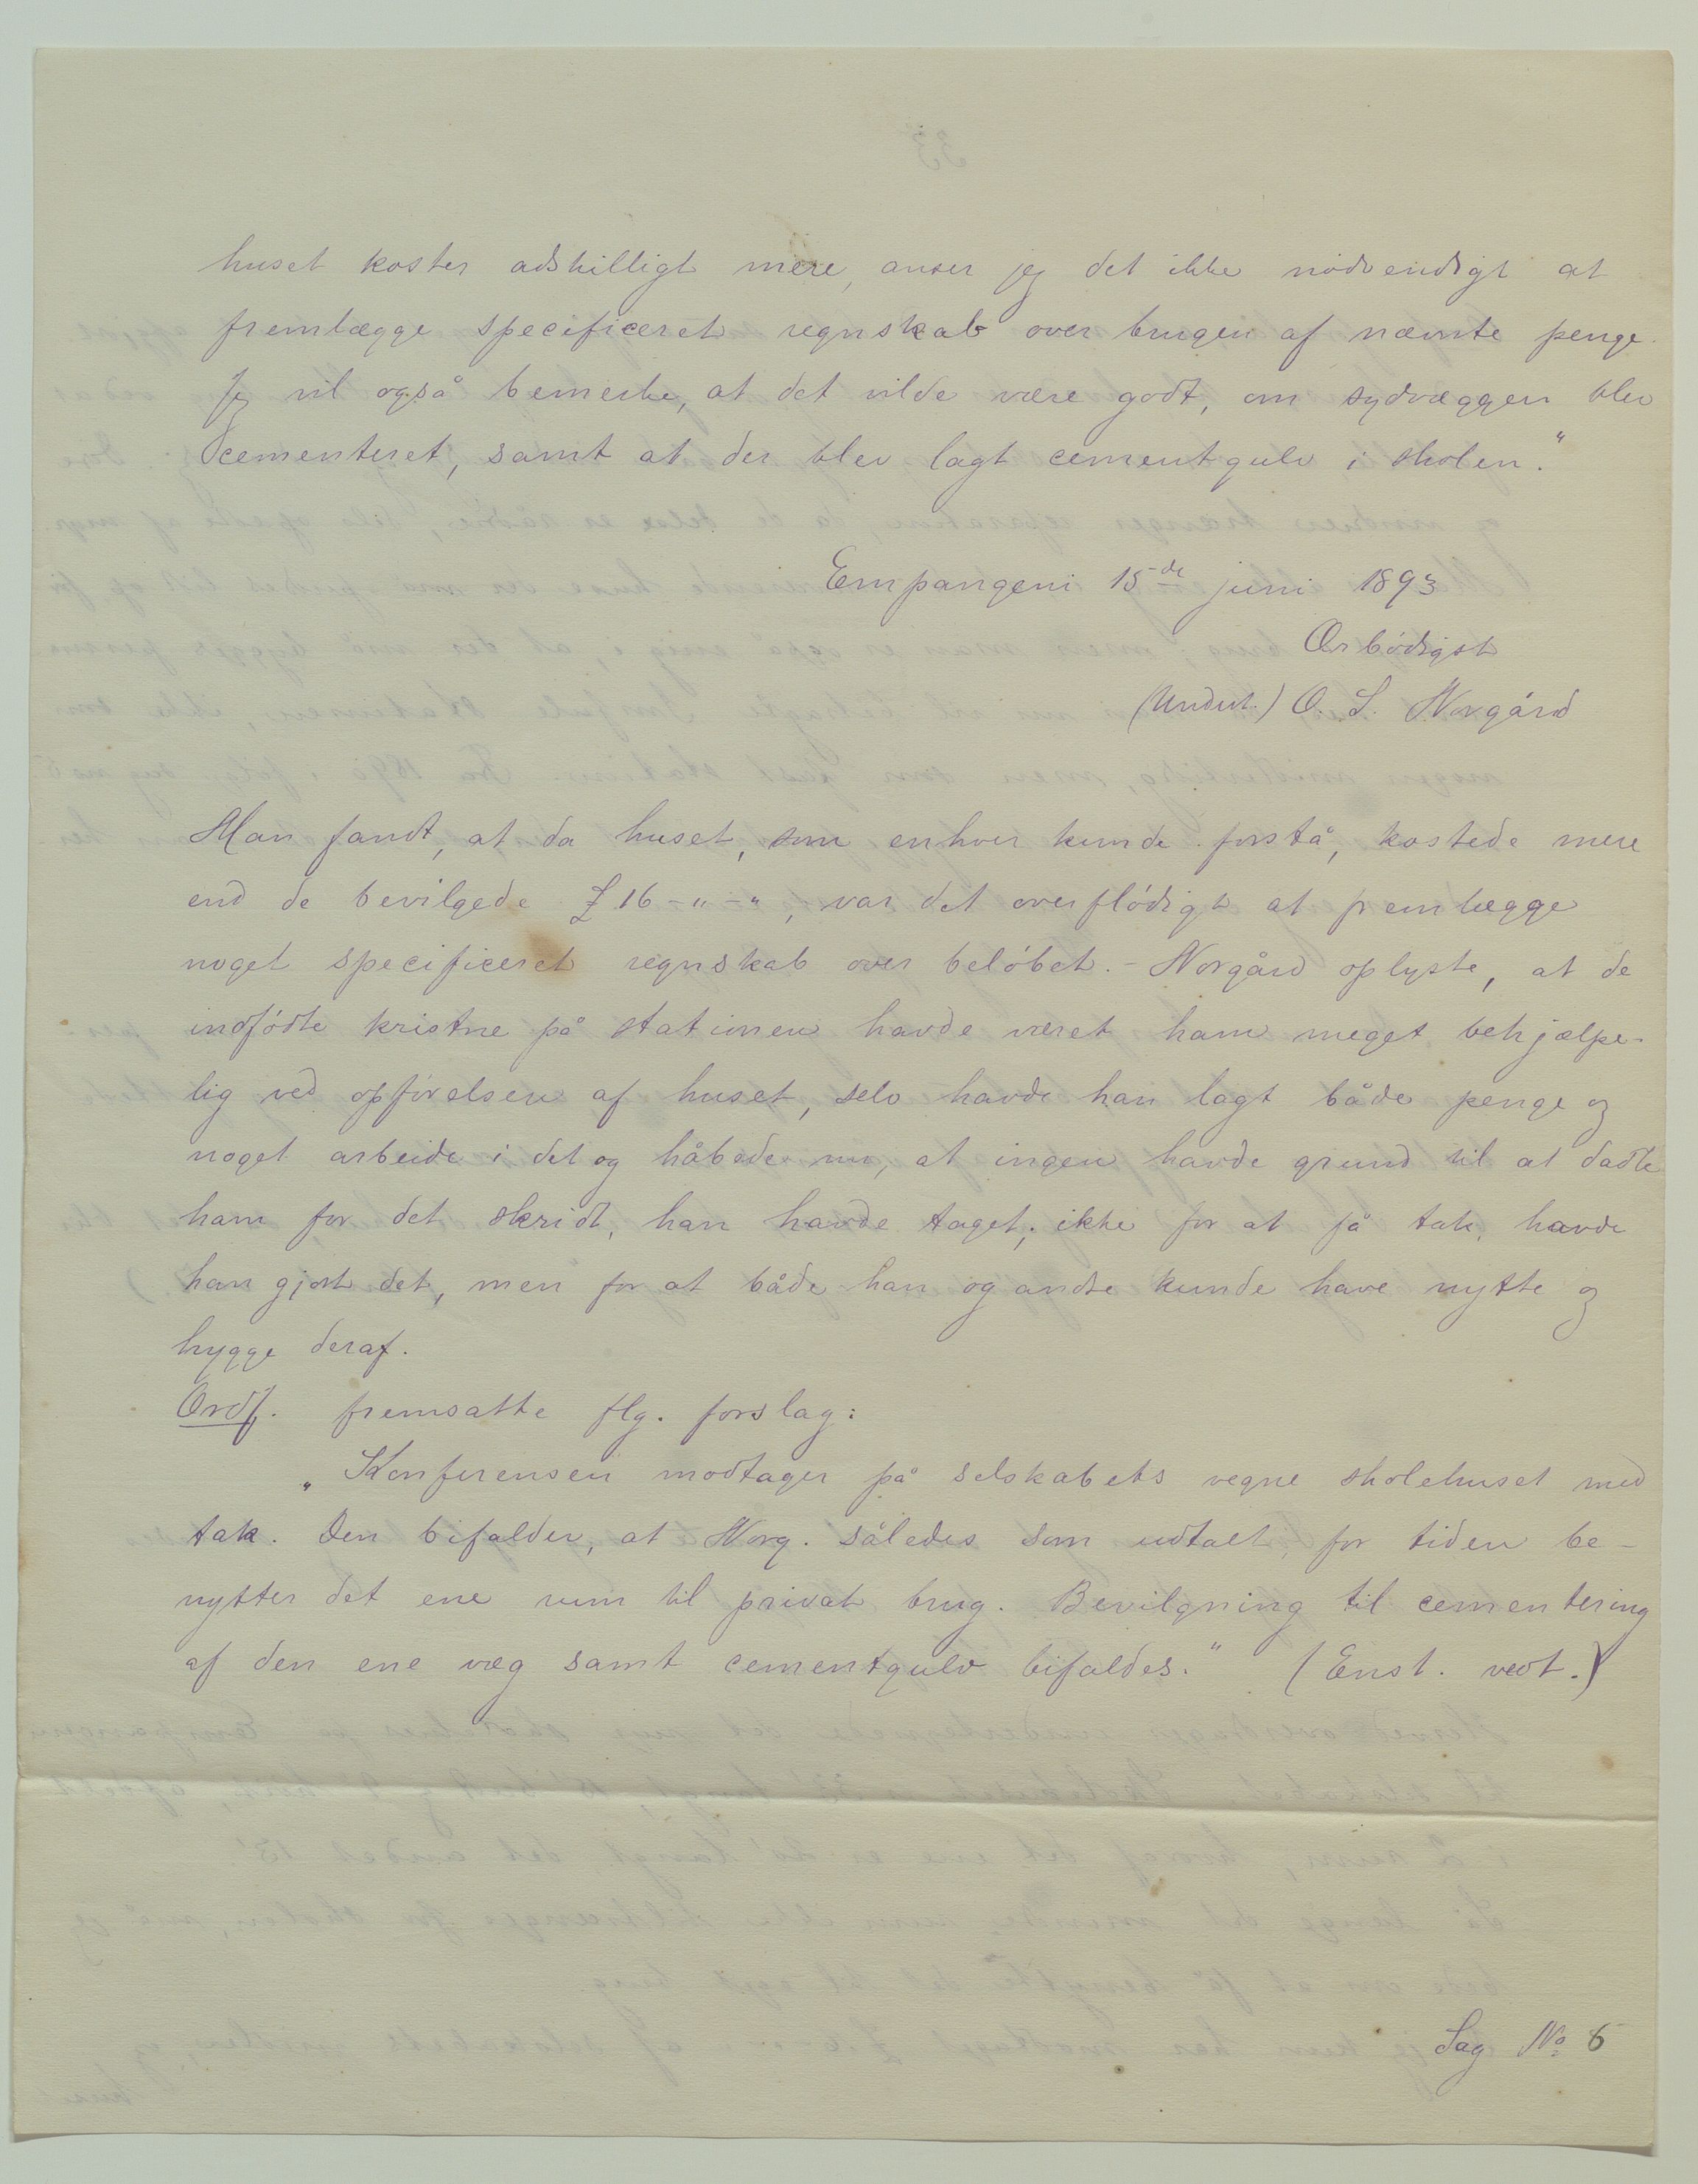 huset koster adskilligt mere, anser jeg det ikke nødvendigt at
fremlægge specificeret regnskab over brugen af nævnte penge.
Jeg vil også bemerke, at det vilde være godt, om sydvæggen blev
cementeret, samt at der blev lagt cementgulv i skolen."
Empangeni 15de juni 1893
Ærbødigst
(Undert.) O. S. Norgård
Man fandt, at da huset, som enhver kunde forstå, kostede mere
end de bevilgede £ 16-"-", var det overflødigt at fremlægge
noget specificeret regnskab over beløbet. - Norgård oplyste, at de
indfødte kristne på stationen havde været ham meget behjælpe-
lig ved opførelsen af huset, selv havde han lagt både penge og
noget arbeide i det og håbede nu, at ingen havde grund til at dadle
ham for det skridt, han havde taget; ikke for at få tak, havde
han gjort det, men for at både han og andre kunde have nytte og
hygge deraf.
Ordf. fremsatte flg. forslag:
„Konferensen modtager på selskabets vegne skolehuset med
tak. Den bifalder, at Norg. således som udtalt, for tiden be-
nytter det ene rum til privat brug. Bevilgning til cementering
af den ene væg samt cementgulv bifaldes." (Enst. vedt.)
Sag No 6